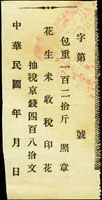 字第　號
包重一百二拾斤　照章
花生米收稅印花
抽稅京錢四百八拾文
中華民國　年　月　日